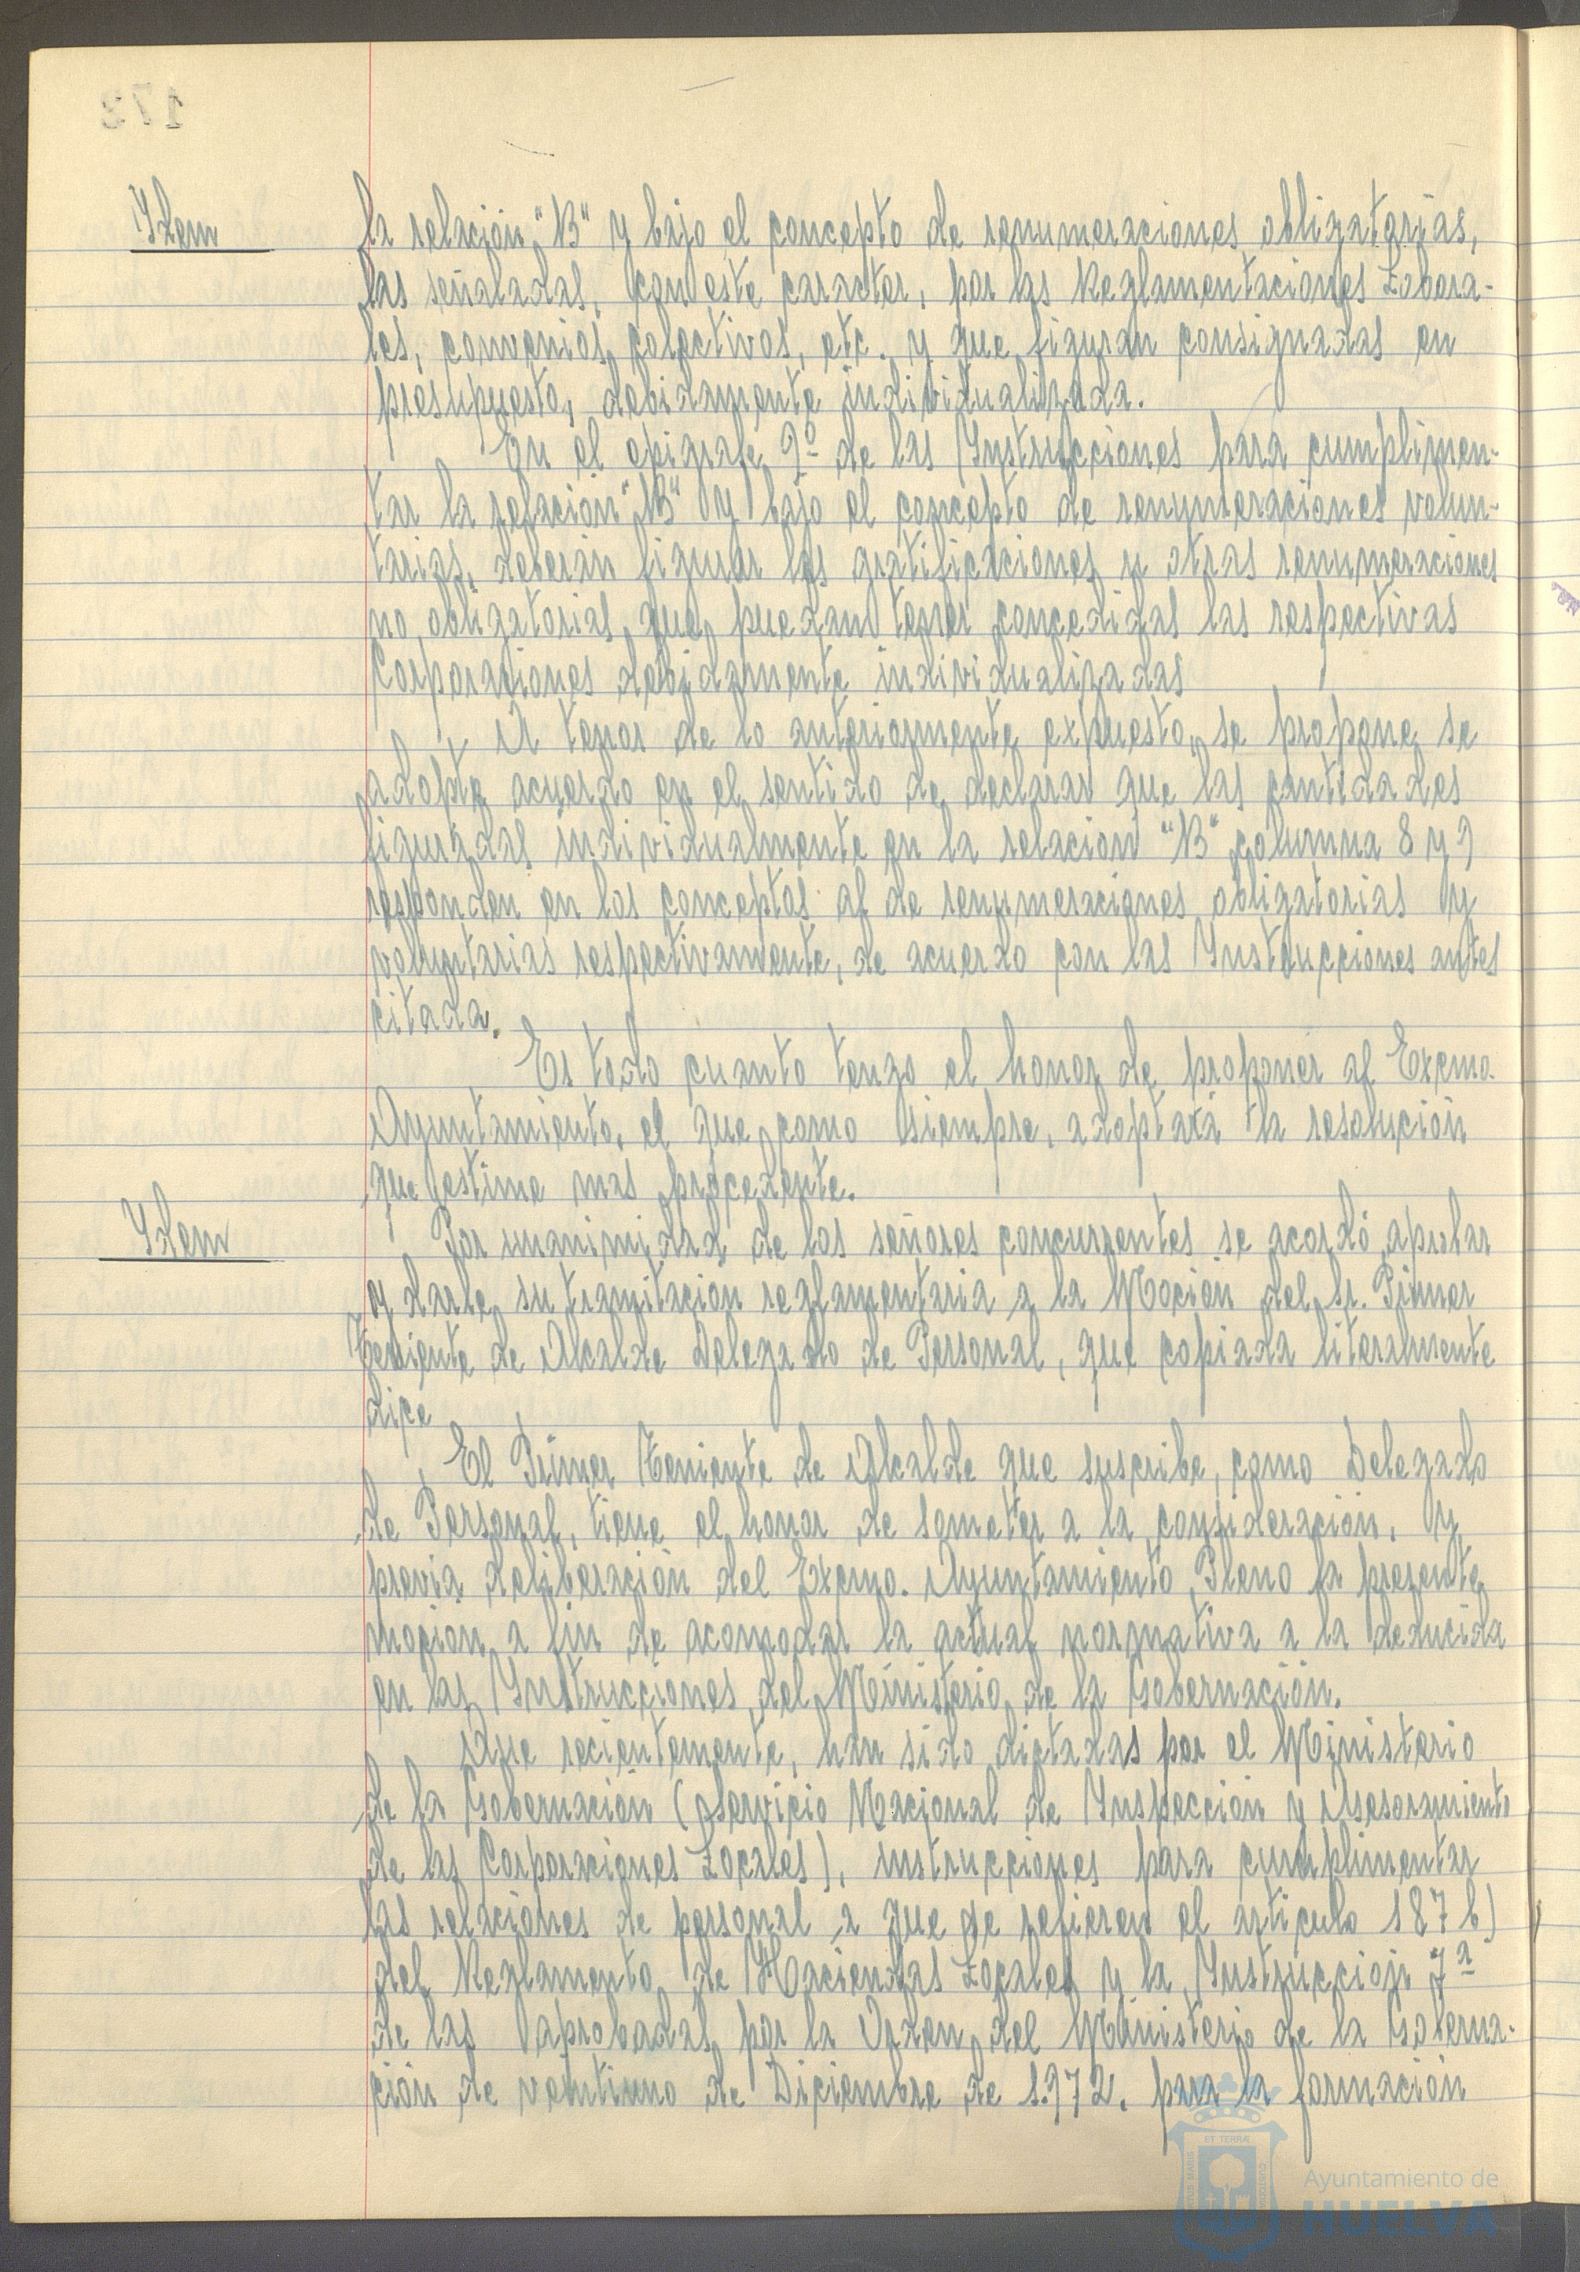 Idem
la relación "B" y bajo el concepto de renumeraciones obligatorias,
las señaladas, con este caracter, por las Reglamentaciones Labora-
les, convenios colectivos, etc. y que figuran consignadas en
presupuesto, debidamente individualizada.
En el epigrafe 9º de las Instrucciones para cumplimen-
tar la relación "B" y bajo el concepto de renumeraciones volun-
tarias, deberán figurar las gratificaciones y otras renumeraciones
no obligatorias que puedan tener concedidas las respectivas
Corporaciones debidamente individualizadas
A tenor de lo anteriormente expuesto, se propone se
adopte acuerdo en el sentido de declarar que las cantidades
figuradas individualmente en la relación "B" columna 8 y 9
responden en los conceptos al de renumeraciones obligatorias y
voluntarias respectivamente, de acuerdo con las Instrucciones antes
citada.
Es todo cuanto tengo el honor de proponer al Excmo.
Ayuntamiento, el que como siempre, adoptará la resolución
que estime mas procedente.
Idem
Por unanimidad de los señores concurrentes se acordó aprobar
y darle su tramitación reglamentaria a la Moción del Sr. Primer
Teniente de Alcalde Delegado de Personal, que copiada literalmente
dice
El Primer Teniente de Alcalde que suscribe, como Delegado
de Personal, tiene el honor de someter a la consideración, y
previa deliberación del Excmo. Ayuntamiento Pleno la presente
moción a fin de acomodar la actual normativa a la deducida
en las Instrucciones del Ministerio de la Gobernación.
Que recientemente, han sido dictadas por el Ministerio
de la Gobernación (Servicio Nacional de Inspección y Asesoramiento
de las Corporaciones Locales), instrucciones para cumplimentar
las relaciones de personal a que se refieren el artículo 187 b)
del Reglamento de Haciendas Locales y la Instrucción 7ª
de las aprobadas por la Orden del Ministerio de la Goberna-
ción de veintiuno de Diciembre de 1.972, para la formación
Ayuntamiento de
HUELVA